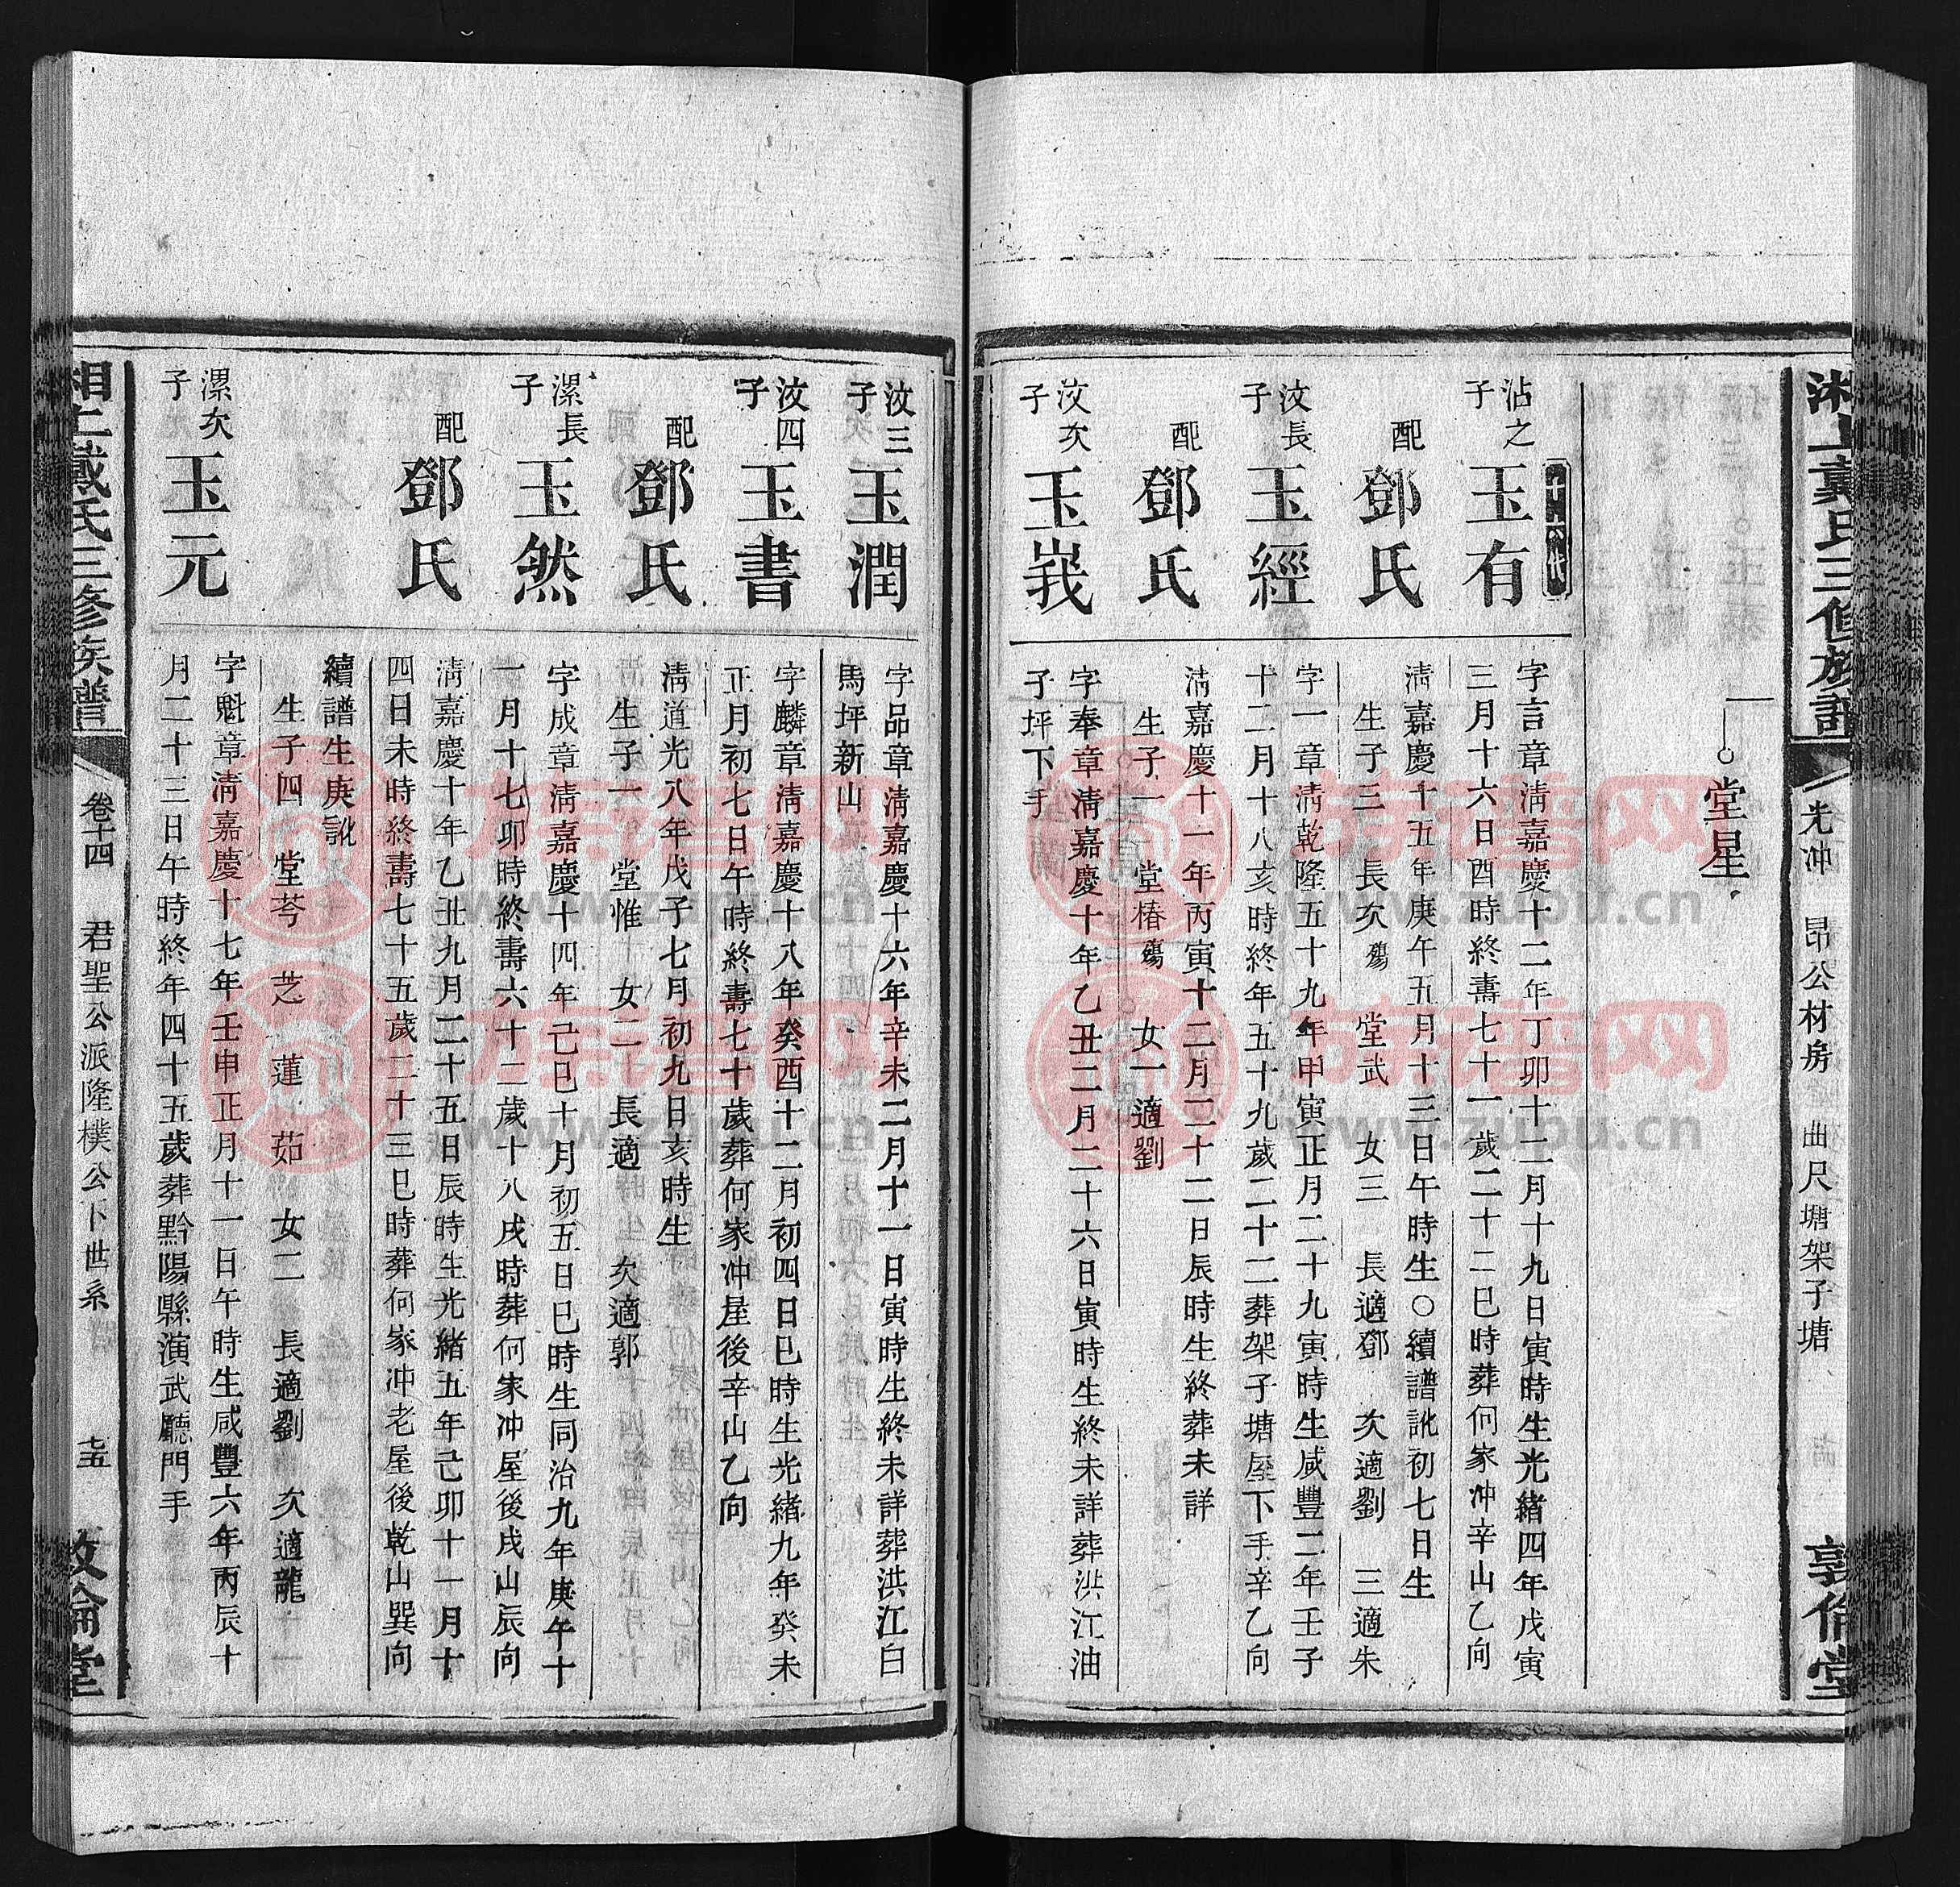 湘上戴氏三修族譜
光冲 昂公材房 曲尺塘架子塘
敦倫堂
堂星
十六代
沾之子 玉有
字言章淸嘉慶十二年丁卯十二月十九日寅時生光緖四年戊寅
三月十六日酉時終壽七十一歲二十二巳時葬何家冲辛山乙向
配 鄧氏
淸嘉慶十五年庚午五月十三日午時生○續譜訛初七日生
生子三 長次殤 堂武 女三 長適鄧 次適劉 三適朱
汶長子 玉經
字一章淸乾隆五十九年甲寅正月二十九寅時生咸豐二年壬子
十二月十八亥時終年五十九歲二十二葬架子塘屋下手辛乙向
配 鄧氏
淸嘉慶十一年丙寅十二月二十二日辰時生終葬未詳
生子一 堂椿殤 女一適劉
汶次子 玉峩
字奉章淸嘉慶十年乙丑二月二十六日寅時生終未詳葬洪江油
子坪下手
汶三子 玉潤
字品章淸嘉慶十六年辛未二月十一日寅時生終未詳葬洪江白
馬坪新山
汶四子 玉書
字麟章淸嘉慶十八年癸酉十二月初四日巳時生光緖九年癸未
正月初七日午時終壽七十歲葬何家冲屋後辛山乙向
配 鄧氏
淸道光八年戊子七月初九日亥時生
生子一 堂惟 女二 長適 次適郭
漯長子 玉然
字成章淸嘉慶十四年己巳十月初五日巳時生同治九年庚午十
一月十七卯時終壽六十二歲十八戌時葬何家冲屋後戌山辰向
配 鄧氏
淸嘉慶十年乙丑九月二十五日辰時生光緖五年己卯十一月十
四日未時終壽七十五歲二十三巳時葬何家冲老屋後乾山巽向
續譜生庚訛
生子四 堂芩 芝 蓮 茹 女二 長適劉 次適龍
漯次子 玉元
字魁章淸嘉慶十七年壬申正月十一日午時生咸豐六年丙辰十
月二十三日午時終年四十五歲葬黔陽縣演武廳門手
湘上戴氏三修族譜
卷十四 君聖公派隆樸公下世系 十五
敦倫堂
族谱网
www.zupu.cn
族谱网
www.zupu.cn
族谱网
www.zupu.cn
族谱网
www.zupu.cn